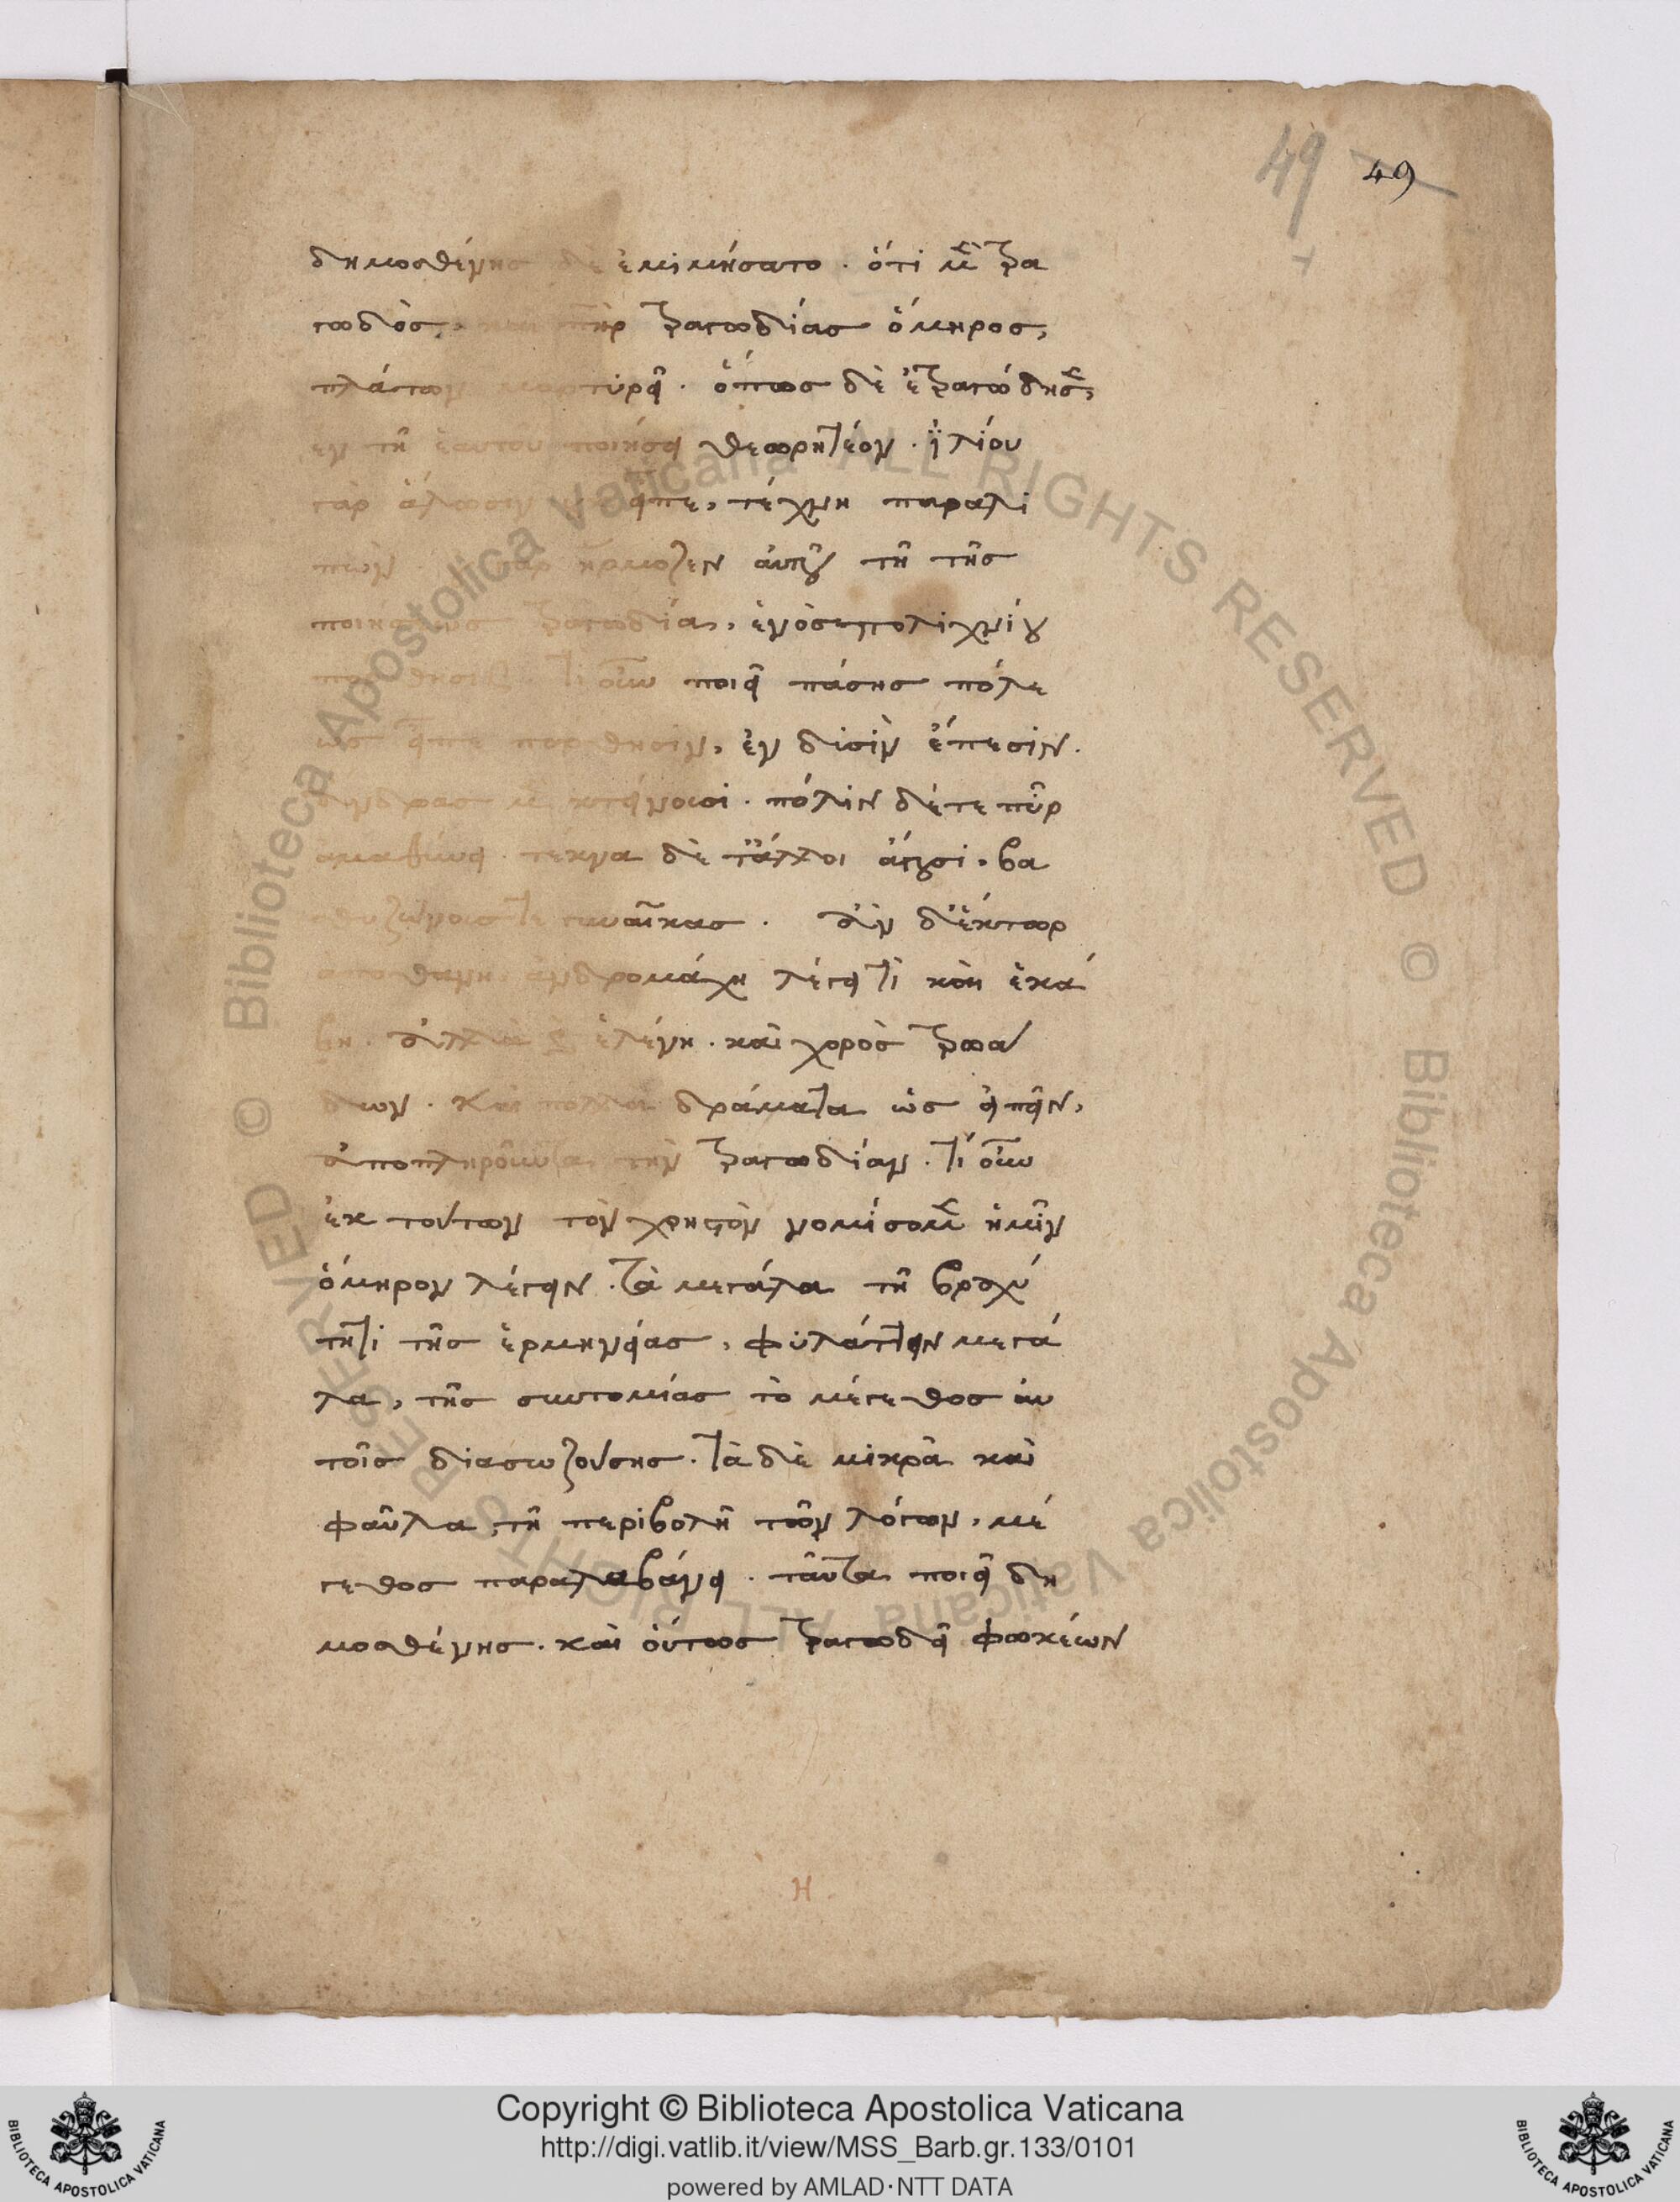 49 49
δημοσθένης δὲ ἐμιμήσατο · ὅτι μὲν τρα
γωδὸς, καὶ πὴρ τραγωδίας ὅμηρος,
πλάτων μαρτυρεῖ · ὅπως δὲ ἐτραγώδησεν,
ἐν τῆ ἑαυτοῦ ποιήσει θεωρητέον · ϊλίου
γὰρ ἅλωσιν εἶπε, τέχνη παραλι
πὼν γὰρ ἥρμοζεν αὐτοῦ τῆ τῆς
ποιήσεως τραγωδία, ἑνὸς πολιχνίου
πόρθησις τί οὖν ποιεῖ πάσης πόλε
ως εἶπε πόρθησιν, ἐν δυσὶν ἔπεσιν.
ἄνδρας μὲν κτείνουσι · πόλιν δέ τε πῦρ
ἀμαθύνει · τέκνα δέ τ' ἄλλοι ἄγουσι, βα
θυζώνους τε γυναῖκας · ἀν δ' ἕκτωρ
ἀποθάνη ἀνδρομάχη λέγει τί καὶ ἑκά
βη · ἀλλὰ ἑλένη · καὶ χορὸς τρωά
δων · καὶ πολλὰ δράματα ὡς εἰπεῖν,
ἀποπληροῦντα τὴν τραγωδίαν · τί οὖν
ἐκ τούτων τὸν χρηστὸν νομίσομεν ἡμῖν
ὅμηρον λέγειν · τὰ μεγάλα τῆ βραχύ
τητι τῆς ἑρμηνείας, φυλάττειν μεγά
λα, τῆς συντομίας τὸ μέγεθος αὐ
τοῖς διασωζούσης · τὰ δὲ μικρὰ καὶ
φαῦλα, τῆ περιβολῆ τῶν λόγων, μέ
γεθος παραλαβάνει · ταῦτα ποιεῖ δη
μοσθένης · καὶ οὕτως τραγωδεῖ φωκέων
Η
Copyright © Biblioteca Apostolica Vaticana
http://digi.vatlib.it/view/MSS_Barb.gr.133/0101
powered by AMLAD·NTT DATA
BIBLIOTECA APOSTOLICA VATICANA
BIBLIOTECA APOSTOLICA VATICANA
© Biblioteca Apostolica Vaticana ALL RIGHTS RESERVED
© Biblioteca Apostolica Vaticana ALL RIGHTS RESERVED